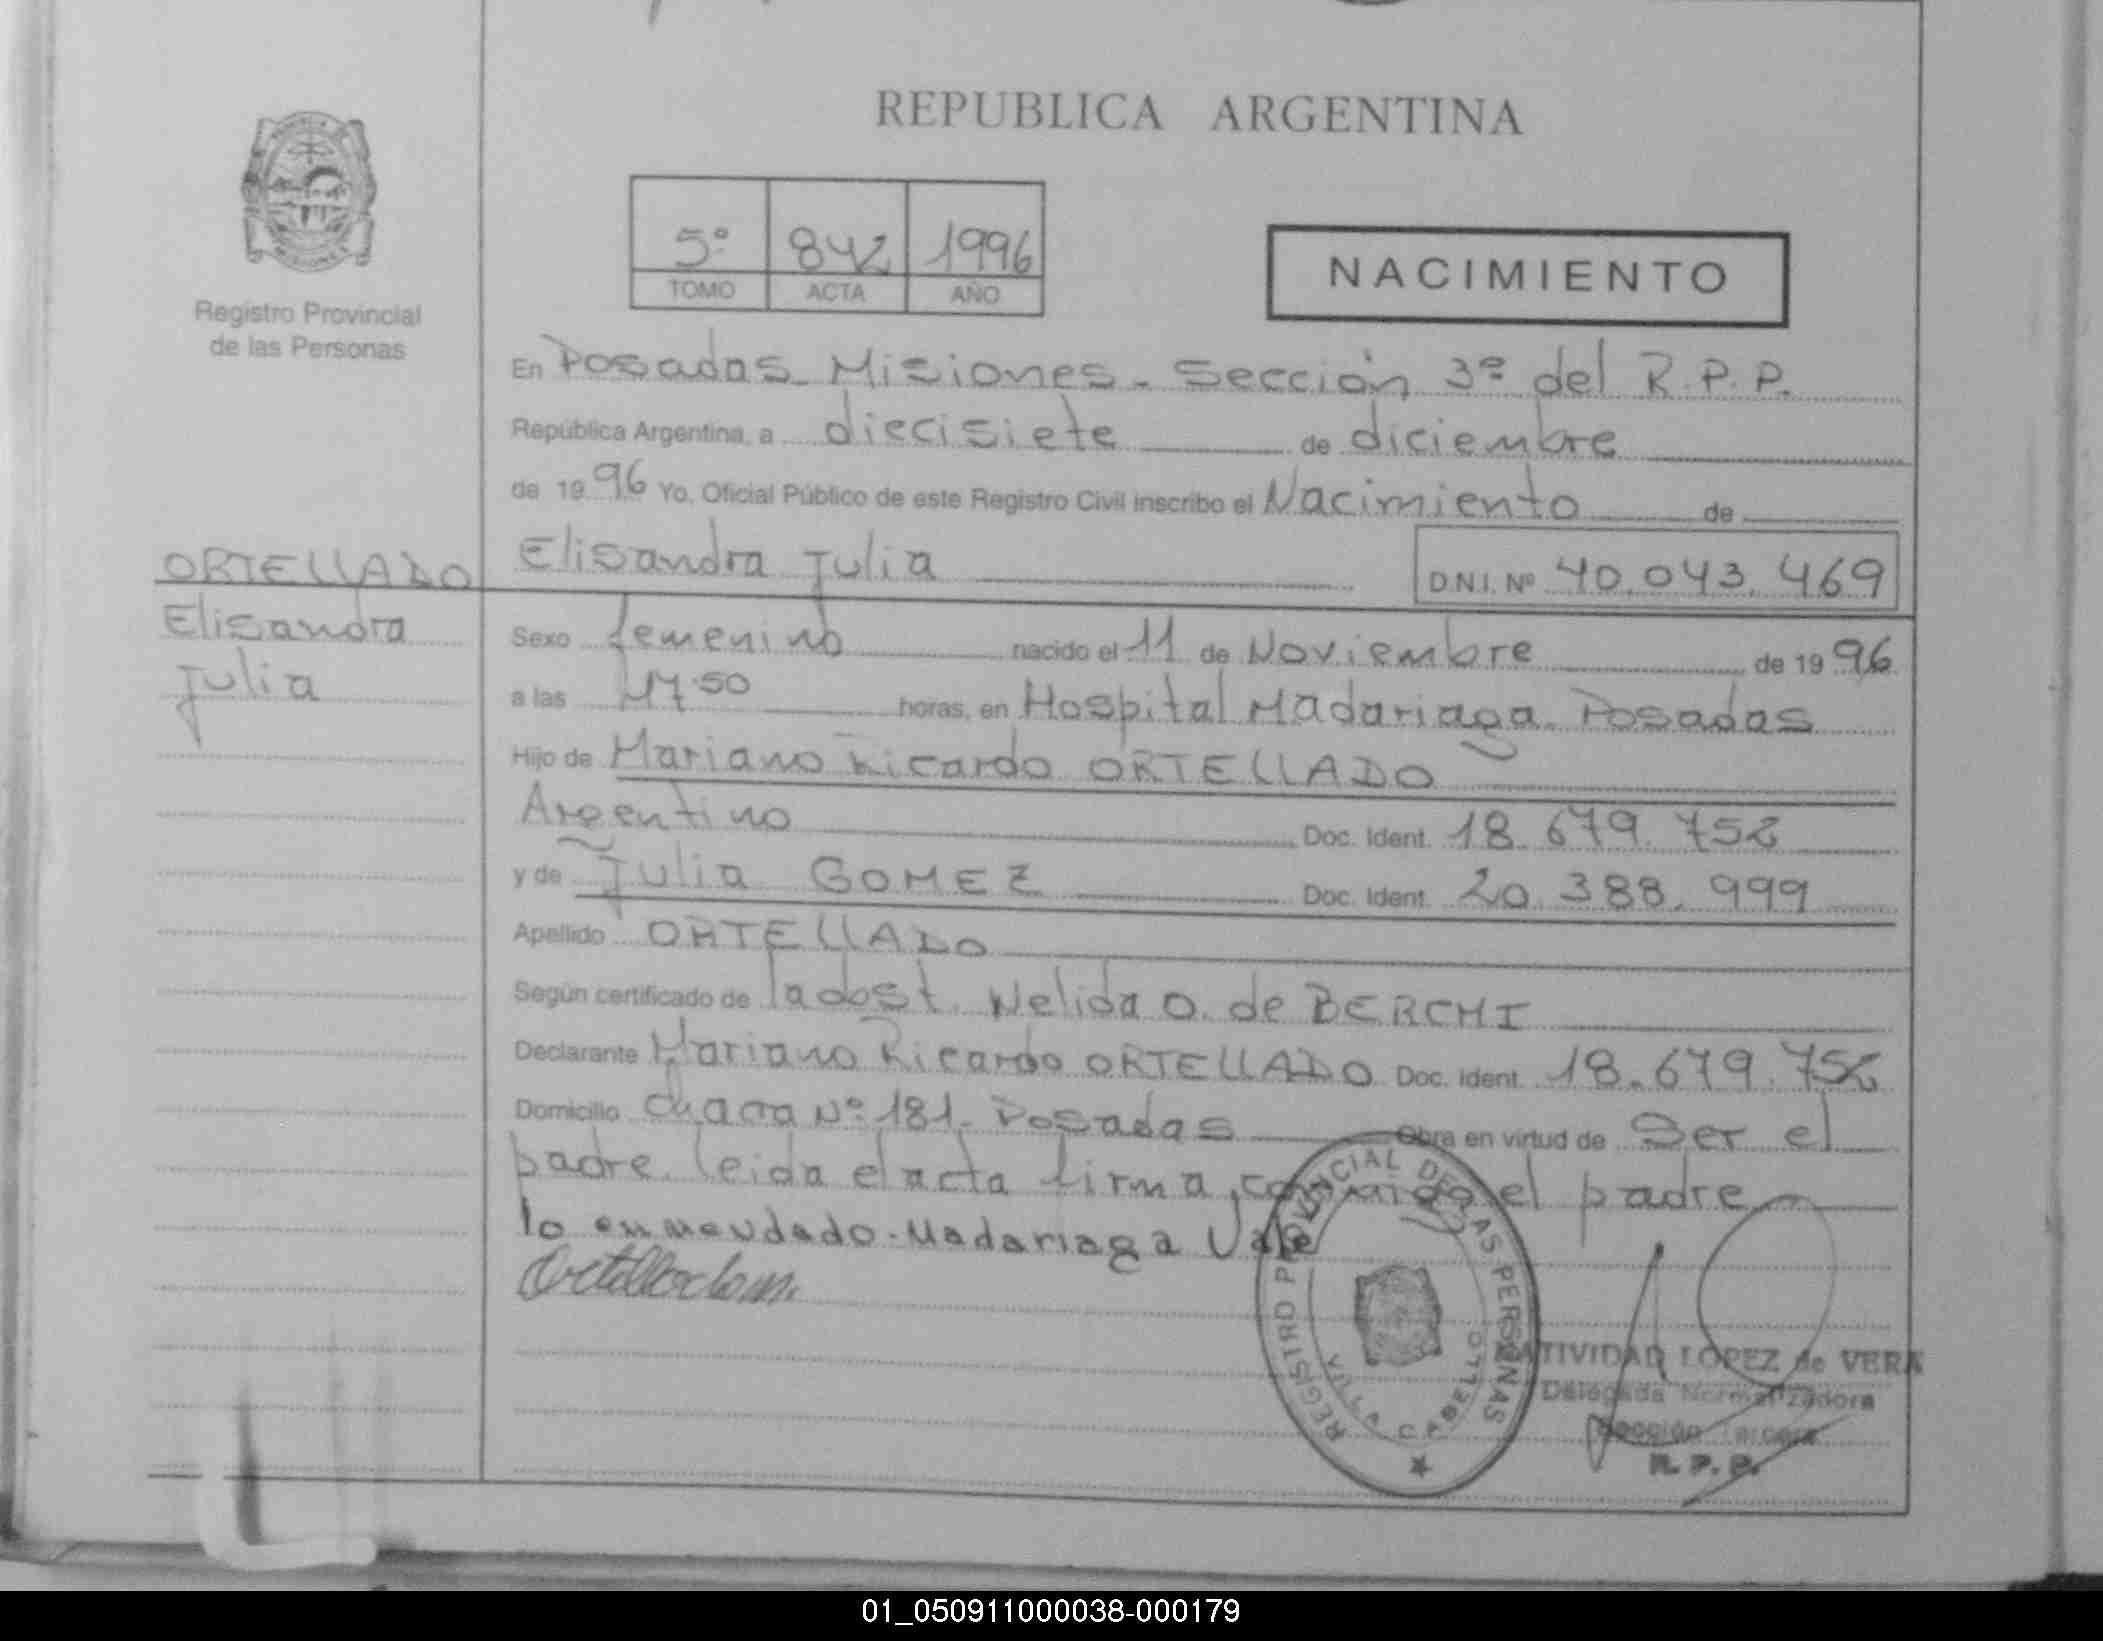 REPUBLICA ARGENTINA
5º 842 1996
TOMO ACTA AÑO
NACIMIENTO
Registro Provincial
de las Personas
En Posadas Misiones. Sección 3ª del R.P.P.
República Argentina, a diecisiete de diciembre
de 1996 Yo, Oficial Público de este Registro Civil inscribo el Nacimiento de
Elisandra Julia D.N.I. Nº 40.043.469
ORTELLADO
Elisandra
Julia
Sexo femenino nacido el 11 de Noviembre de 1996
a las 17.50 horas, en Hospital Madariaga. Posadas
Hijo de Mariano Ricardo ORTELLADO
Argentino Doc. Ident. 18.679.752
y de Julia GOMEZ Doc. Ident. 20.388.999
Apellido ORTELLADO
Según certificado de la obst. Nelida O. de BERCHI
Declarante Mariano Ricardo ORTELLADO Doc. Ident. 18.679.752
Domicilio Chacra Nº 181. Posadas Obra en virtud de Ser el
padre. leida el acta firma conmigo el padre
lo enmendado. Madariaga Vale
REGISTRO PROVINCIAL DE LAS PERSONAS
VILLA CABELLO
NATIVIDAD LOPEZ de VERA
Delegada Normalizadora
Sección Tercera
R.P.P.
01_050911000038-000179